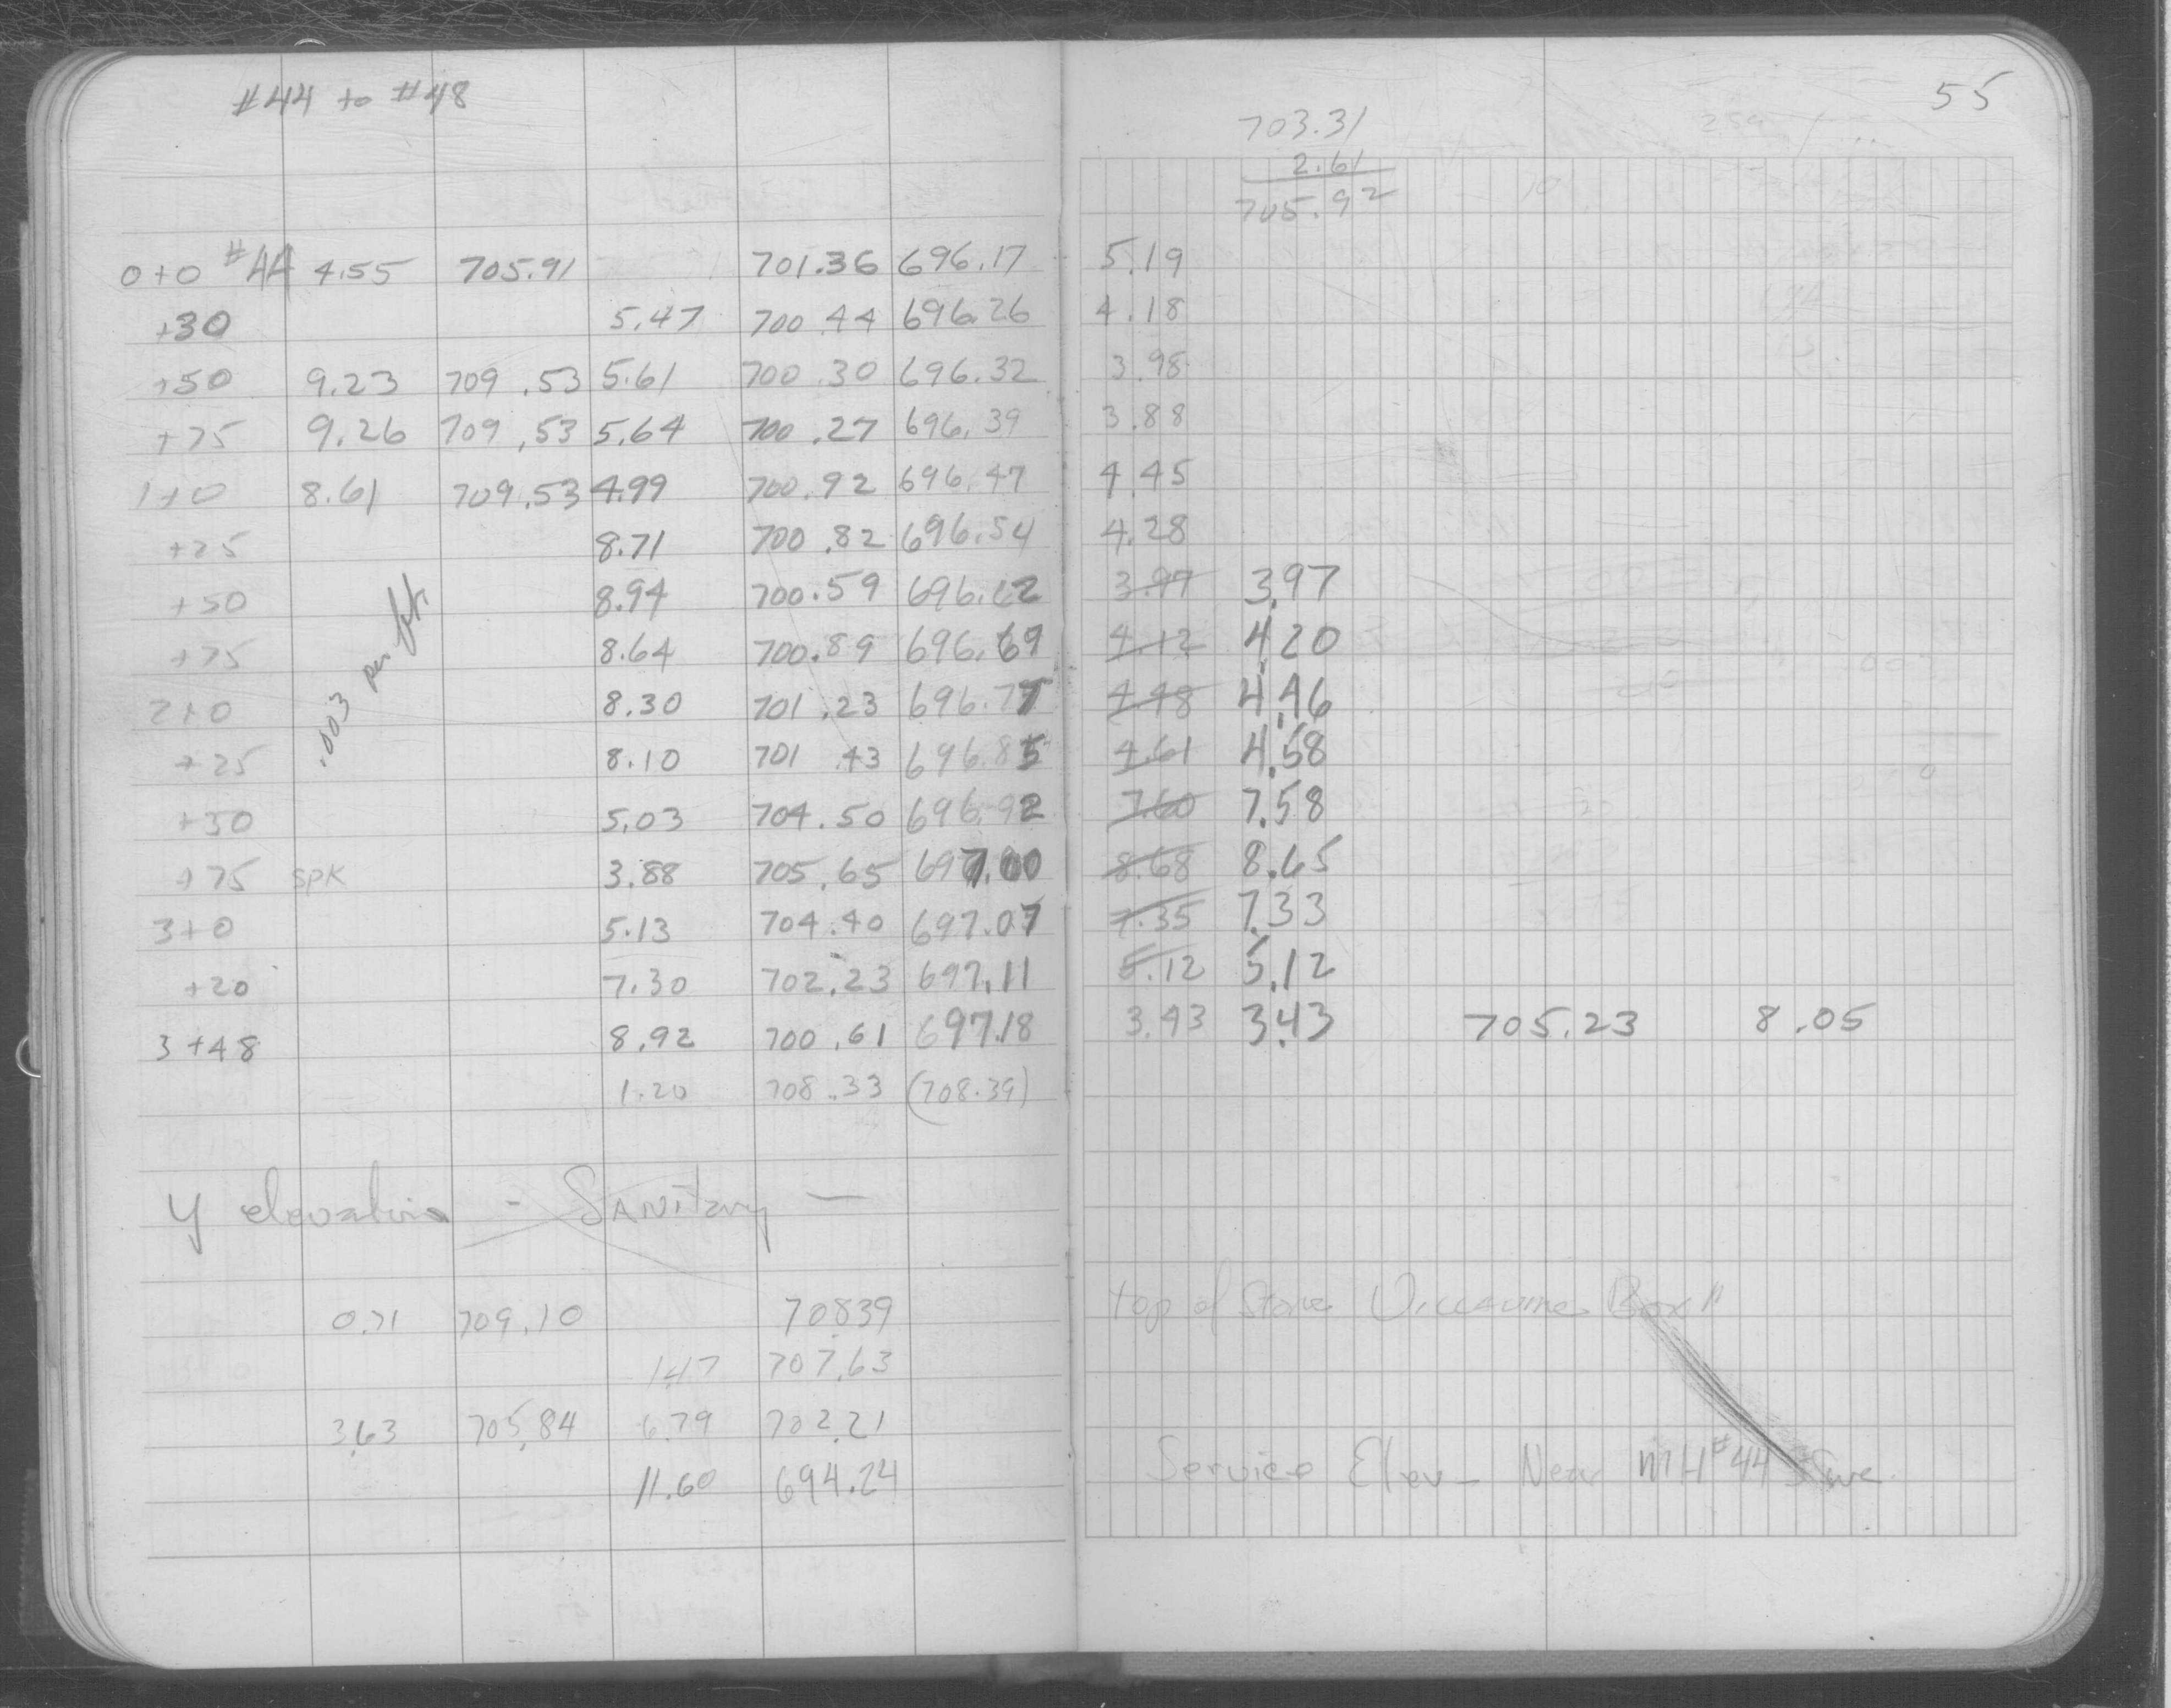 #44 to #48
0+0 #44 4.55 705.91 701.36 696.17
+30 5.47 700.44 696.26
+50 9.23 709.53 5.61 700.30 696.32
+75 9.26 709.53 5.64 700.27 696.39
1+0 8.61 709.53 4.99 700.92 696.47
+25 8.71 700.82 696.54
+50 8.94 700.59 696.62
+75 8.64 700.89 696.69
2+0 8.30 701.23 696.77
+25 8.10 701 43 696.85
+50 5.03 704.50 696.92
+75 SPK 3.88 705.65 697.00
3+0 5.13 704.40 697.07
+20 7.30 702.23 697.11
3+48 8.92 700.61 697.18
1.20 708.33 (708.39)
.003 per ft.
Y elevation - Sanitary -
0.71 709.10 70839
1.47 707.63
3.63 705.84 6.79 702.21
11.60 694.24
55
703.31
2.61
705.92
5.19
4.18
3.98
3.88
4.45
4.28
3.97 3.97
4.12 4.20
4.48 4.46
4.61 4.58
7.60 7.58
8.68 8.65
7.35 7.33
5.12 5.12
3.43 3.43 705.23 8.05
top of Stone Box
Service Elev - Near MH #44